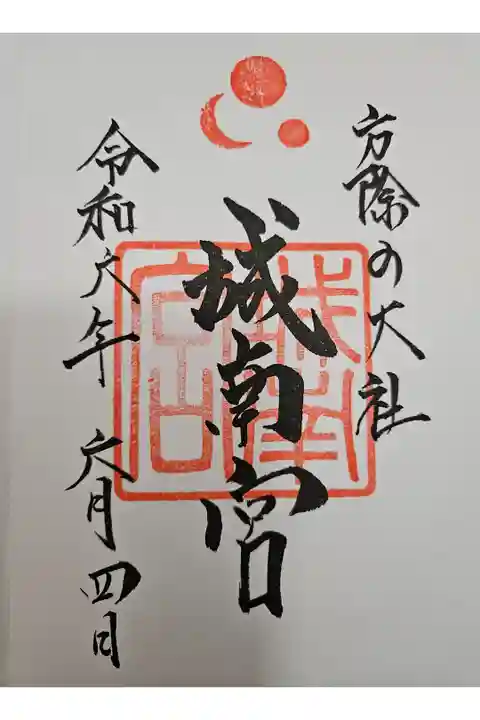 方除の大社
城南宮
令和六年 六月四日
城南宮